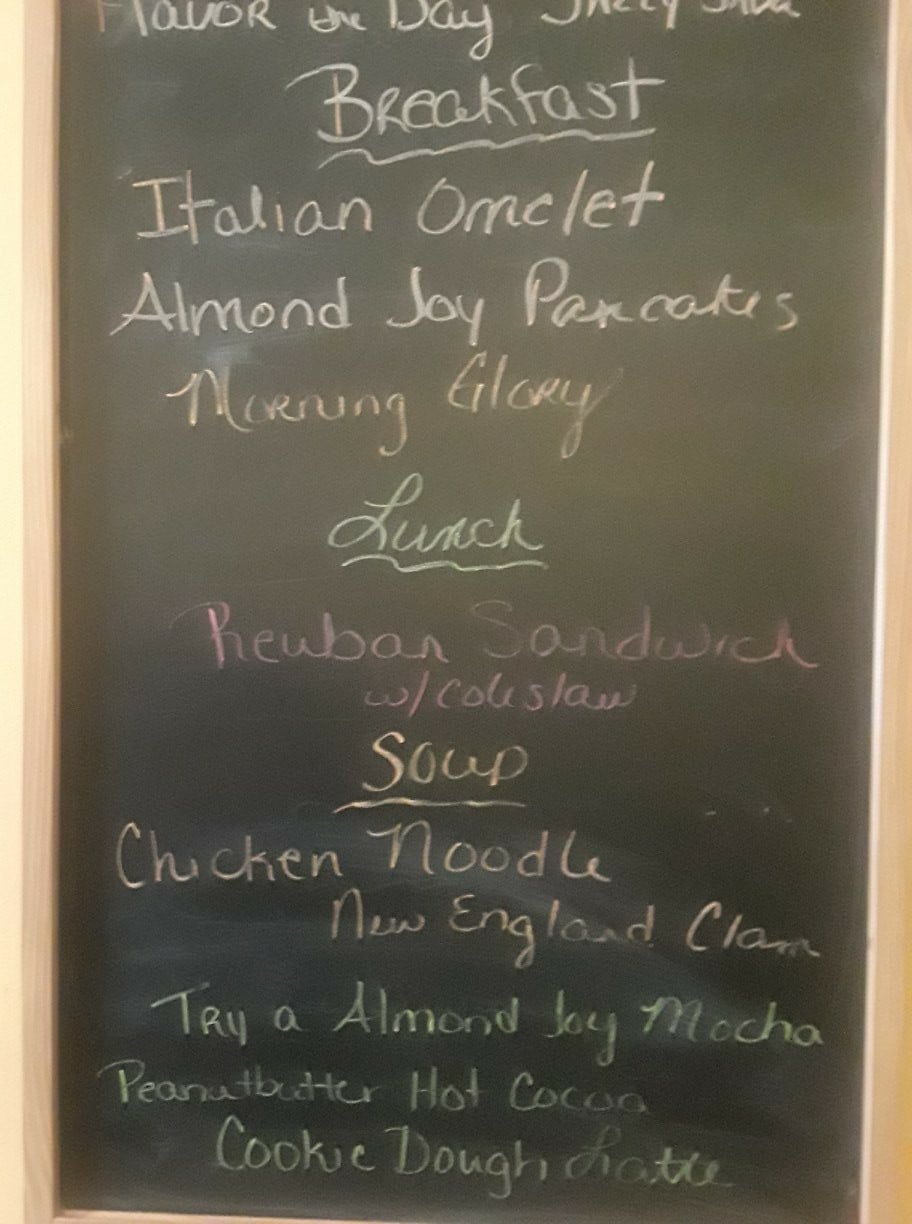 Flavor the Day
Breakfast
Italian Omelet
Almond Joy Pancakes
Morning Glory
Lunch
Reuban Sandwich
w/coleslaw
Soup
Chicken Noodle
New England Clam
Try a Almond Joy Mocha
Peanutbutter Hot Cocoa
Cookie Dough Latte